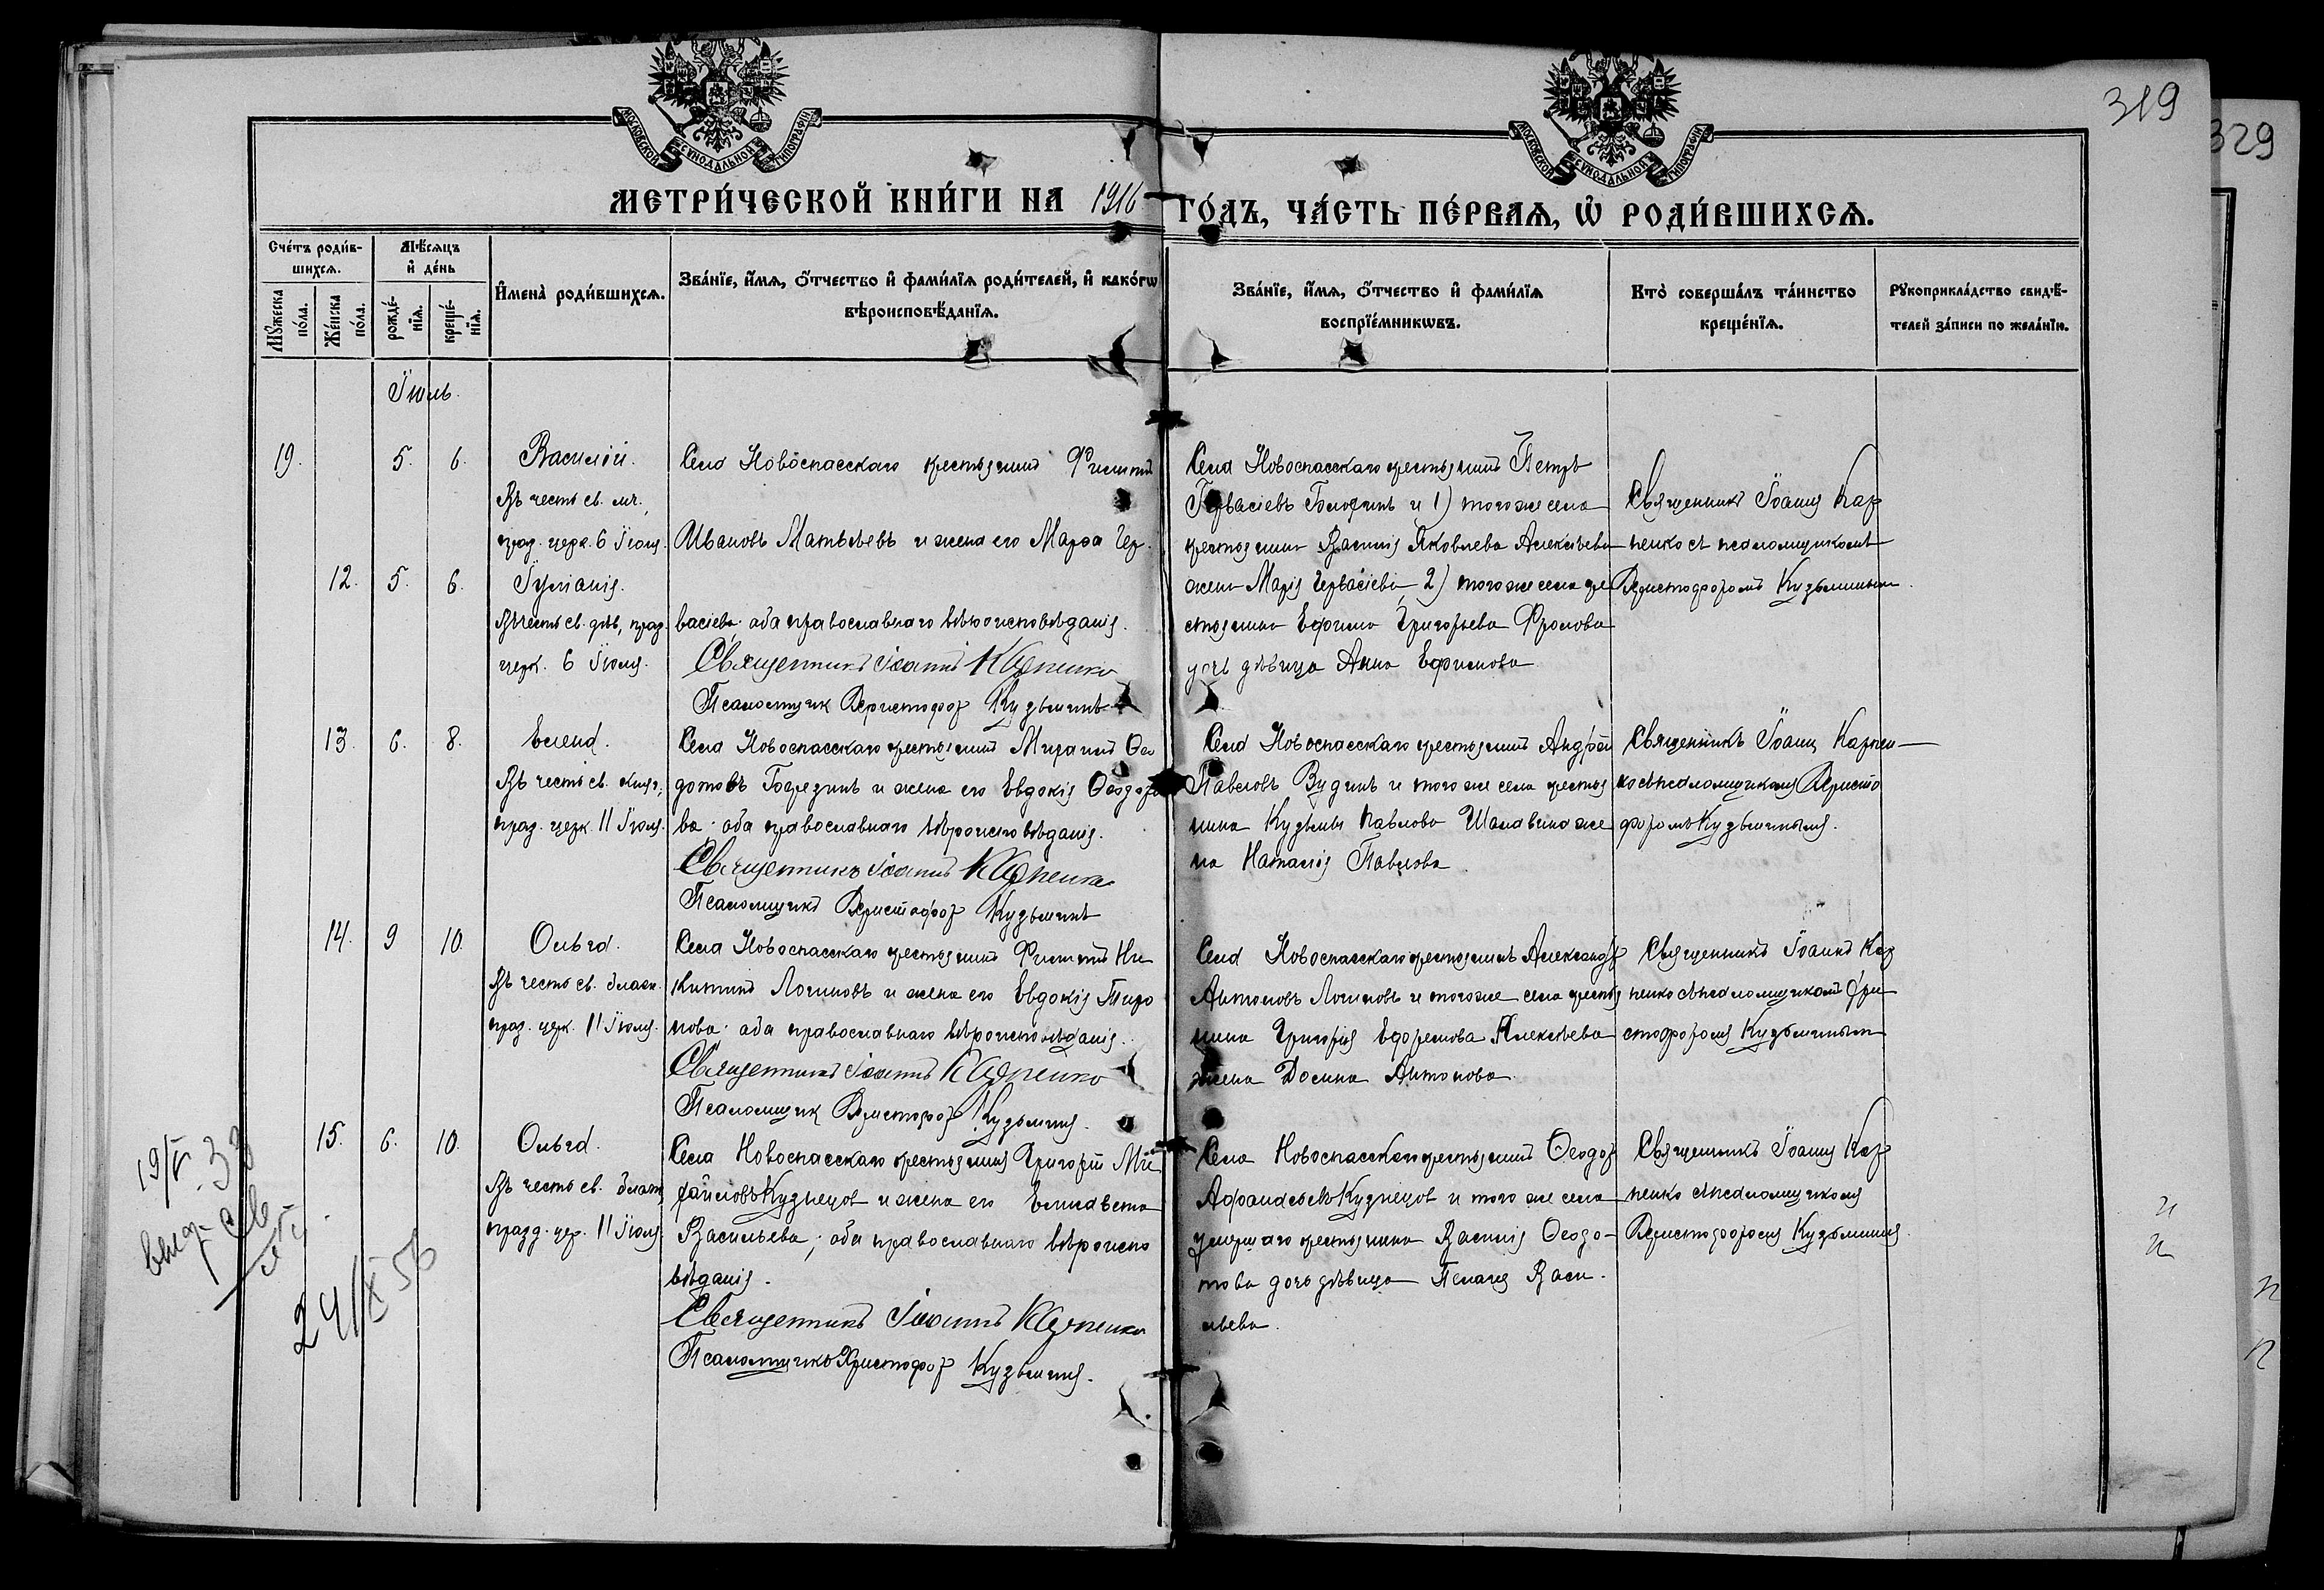 319
329
МОСКОВСКОЙ СѴНОДАЛЬНОЙ ТИПОГРАФІИ
МОСКОВСКОЙ СѴНОДАЛЬНОЙ ТИПОГРАФІИ
МЕТРИ́ЧЕСКОЙ КНИ́ГИ НА 1916 ГО́ДЪ, ЧА́СТЬ ПЕ́РВАЯ, Ѡ҆ РОДИ́ВШИХСЯ.
Сче́тъ роди́в-
шихся.
Мѣ́сяцъ
и҆ де́нь
Мꙋ́жеска
по́ла.
Же́нска
по́ла.
рожде́-
нїя.
креще́-
нїя.
И҆мена̀ роди́вшихся.
Зва́нїе, и҆́мя, ѻ҆́тчество и҆ фами́лїя роди́телей, и҆ како́гѡ
вѣроисповѣ́данїя.
Зва́нїе, и҆́мя, ѻ҆́тчество и҆ фами́лїя
воспрїе́мникѡвъ.
Кто̀ соверша́лъ та́инство
креще́нїя.
Рꙋкоприкла́дство свидѣ́-
телей за́писи по жела́нїю.
Іюль.
19. 5. 6. Василій.
Въ честь св. мч.,
праз. церк. 6 Іюля.
Села Новоспасскаго крестьянинъ Филиппъ
Ивановъ Матвѣевъ и жена его Марѳа Гер-
12. 5. 6. Іуліанія.
Въ честь св. дѣв, праз.
церк. 6 Іюля.
васіева оба православнаго вѣроисповѣданія.
Священникъ Іоаннъ Карпенко
Псаломщик Христофор Кузьминъ
Села Новоспасскаго крестьянинъ Петръ
Гервасіевъ и 1) того же села
крестьянина Василія Яковлева Алексѣева
жена Марія Гервасіева 2) того же села кре
стьянина Ефима Григорьева Фролова
дочь дѣвица Анна Ефимова
Священникъ Іоаннъ Кар
пенко съ псаломщикомъ
Христофоромъ Кузьминымъ.
13. 6. 8. Елена.
Въ честь св. княг.,
праз. церк. 11 Іюля.
Села Новоспасскаго крестьянинъ Ѳео
дотовъ и жена его Евдокія Ѳеодоро
ва оба православнаго вѣроисповѣданія.
Священникъ Іоаннъ Карпенко
Псаломщикъ Христофор Кузьминъ
Села Новоспасскаго крестьянинъ Андрей
Павловъ и того же села крестья
нина Кузьмы Павлова же
на Наталія Павлова
Священникъ Іоанн Карпен-
ко съ псаломщикомъ Христо
форомъ Кузьминымъ.
14. 9 10. Ольга.
Въ честь св. благ.
праз. церк. 11 Іюля.
Села Новоспасскаго крестьянинъ Филиппъ Ни
китинъ Логиновъ и жена его Евдокія Миро
нова оба православнаго вѣроисповѣданія.
Священникъ Іоаннъ Карпенко
Псаломщик Христофор Кузьминъ.
Села Новоспасскаго крестьянинъ Александр
Антоновъ Логиновъ и того же села крестья
нина Григорія Ефремова Алексѣева
жена Домна Антонова
Священникъ Іоаннъ Кар
пенко съ псаломщикомъ Хри
стофоромъ Кузьминымъ
15. 6. 10. Ольга.
Въ честь св. благ.
празд. цер. 11 Іюля.
Села Новоспасскаго крестьянинъ Григорій Ми
хайловъ Кузнецов и жена его Елисавета
Васильева; оба православнаго вѣроиспо
вѣданія.
Священникъ Іоаннъ Карпенко
Псаломщикъ Христофор Кузьминъ.
Села Новоспасскаго крестьянинъ Ѳеодор
Кузнецов и того же села
умершаго крестьянина Василія Ѳеодо-
това дочь дѣвица Васи-
льева.
Священникъ Іоаннъ Кар
пенко съ псаломщикомъ
Христофоромъ Кузьминымъ.
19/V 33
24/X 56